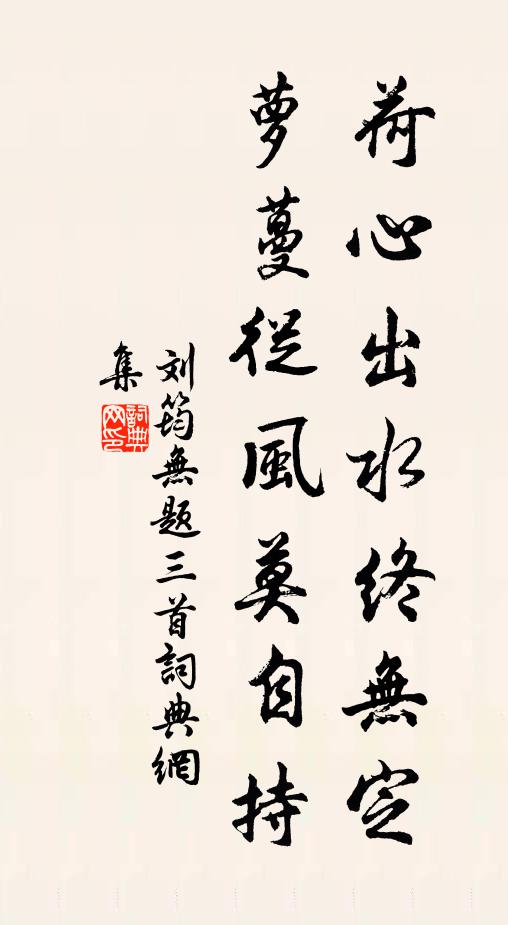 荷心出水終無定
萝蔓從風莫自持
刘筠無题三首詞典網
集
詞典网印